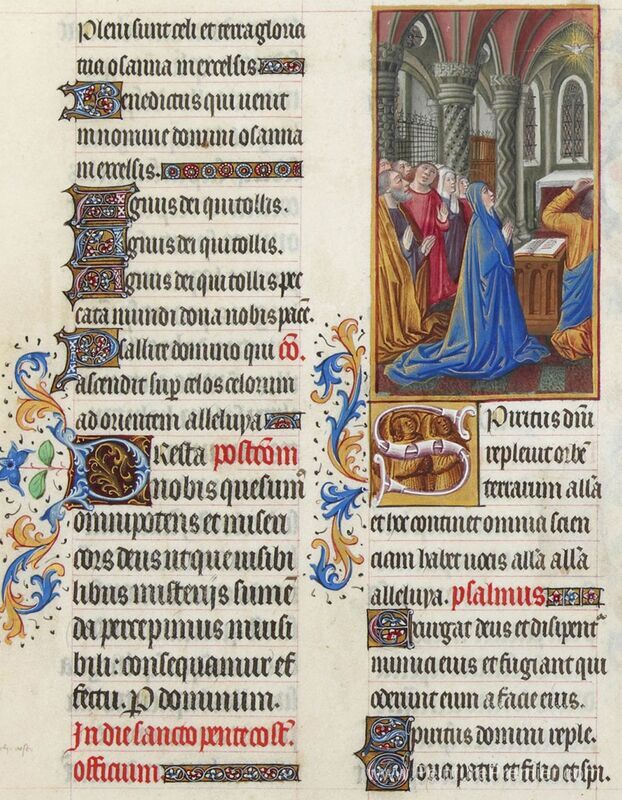 Pleni sunt celi et terra gloria
tua osanna in excelsis.
Benedictus qui uenit
in nomine domini osanna
in excelsis.
Agnus dei qui tollis.
Agnus dei qui tollis.
Agnus dei qui tollis pec
cata mundi dona nobis pacē.
Psallite domino qui cō.
ascendit sup celos celorum
ad orientem alleluya
Presta postcōm
nobis quesum
omnipotens et miseri
cors deus ut que uisibi
libus misterijs sumē
da percepimus inuisi
bili: consequamur ef
fectu. P dominum.
In die sancto pentecost̄.
officium
Spiritus dn̄i
repleuit orbē
terrarum alla
et hoc continet omnia scien
ciam habet uocis alla alla
alleluya. psalmus
Exurgat deus et disipent
inimici eius et fugiant qui
oderunt eum a facie eius.
Spiritus domini reple.
Gloria patri et filio et spi.